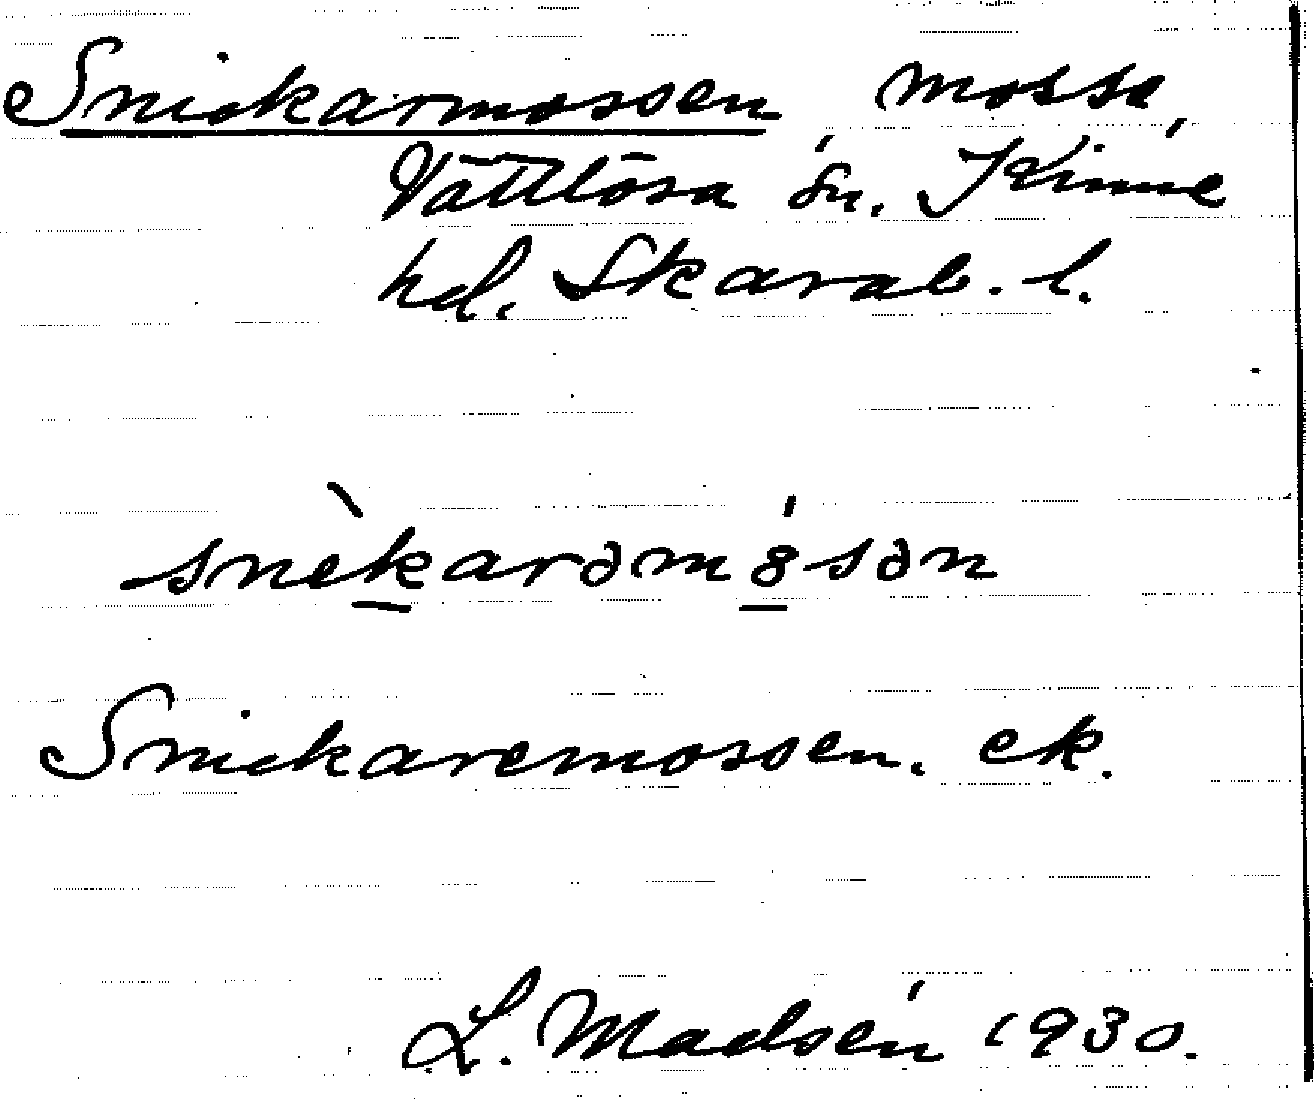 Snickarmossen mosse
Vättlösa sn. Kinne
hd. Skarab. l.
snèkarəm8́sən
Snickaremossen. ek.
L. Madsén 1930.